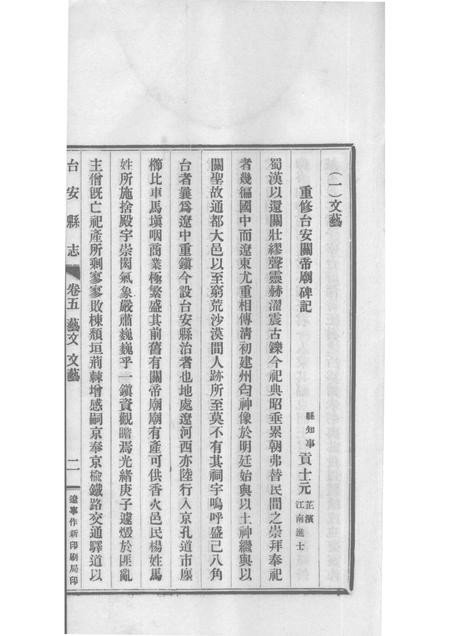 (一)文藝
重修台安關帝廟碑記
縣知事 貢士元 芷濱 江南進士
蜀漢以還關壯繆聲靈赫濯震古鑠今祀典昭垂累朝弗替民間之崇拜奉祀
者幾徧國中而遼東尤重相傳清初建州匄神像於明廷始與以土神繼與以
關聖故通都大邑以至窮荒沙漠間人跡所至莫不有其祠宇嗚呼盛已八角
台者曩為遼中重鎮今設台安縣治者也地處遼河西亦陸行入京孔道市廛
櫛比車馬塡咽商業極繁盛其前舊有關帝廟廟有產可供香火邑民楊姓馬
姓所施捨殿宇崇閎氣象嚴肅巍巍乎一鎮資觀瞻焉光緒庚子遽燬於匪亂
主僧旣亡祀產所剩寥寥敗棟頹垣荊棘增感嗣京奉京楡鐵路交通驛道以
台安縣志
卷五 藝文 文藝
二
遼寧作新印刷局印